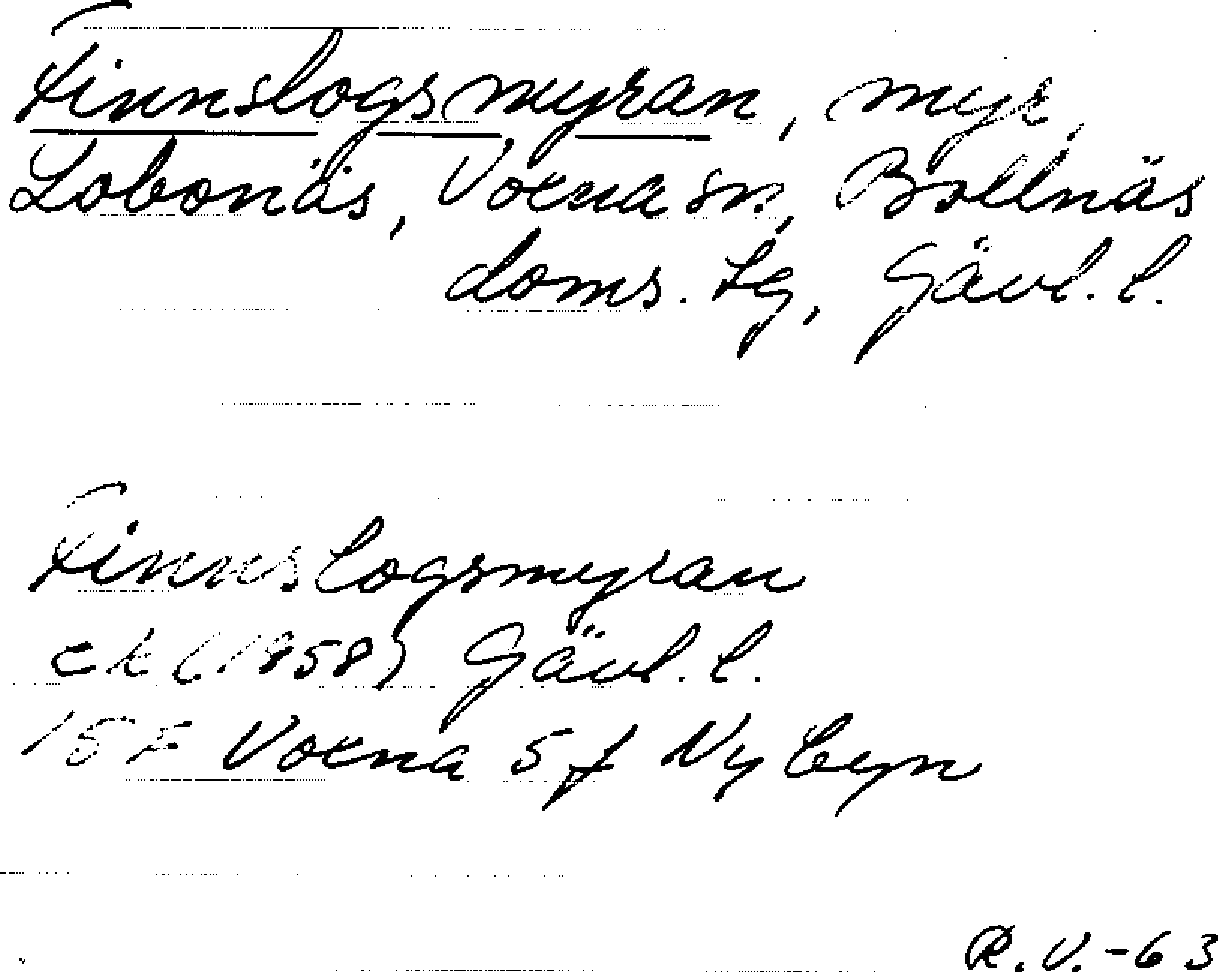 Finnslogsmyran, myr,
Lobonäs, Voxna sn, Bollnäs
doms. lg, Gävl. l.
Finnslogsmyran
ek (1958) Gävl. l.
15 F Voxna 5 f Nybyn
R.V.-63